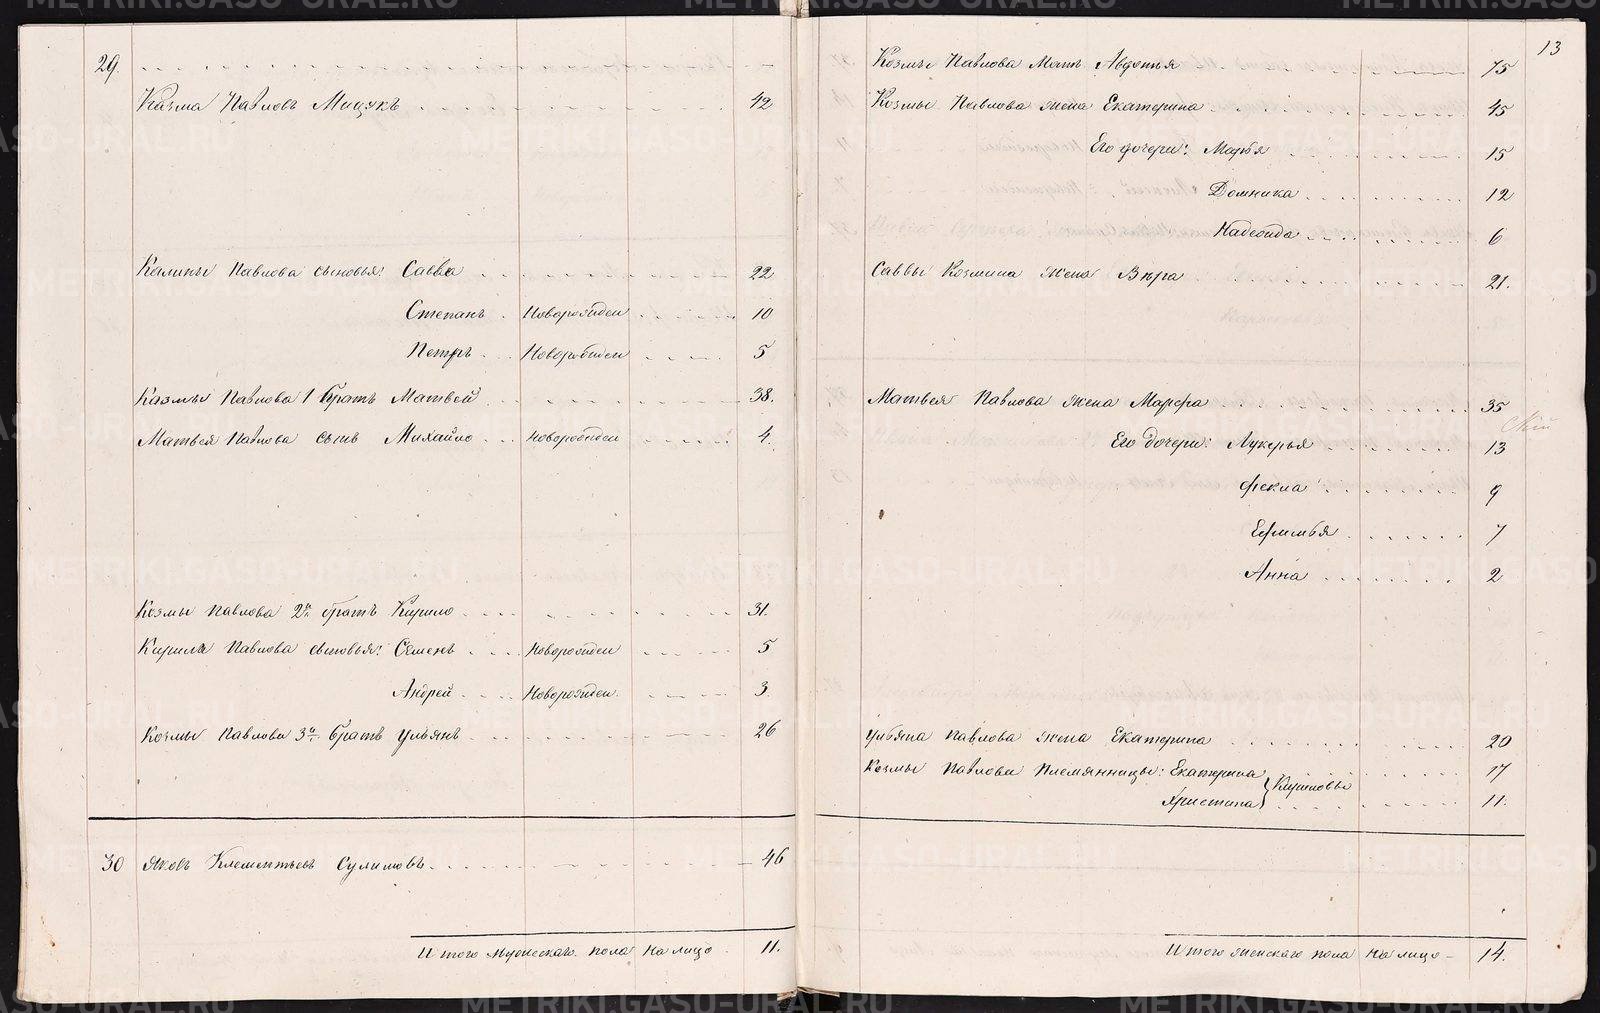 13
29.
Козма Павловъ Мицукъ 42
Калины Павлова сыновья: Савва 22
Степанъ Новорожден 10
Петръ Новорожден 5
Казмы Павлова 1 братъ Матвей 38.
Матвея Павлова сынъ Михайло Новорожден 4.
Козмы Павлова 2й братъ Кирило 31.
Кирила Павлова сыновья: Семенъ Новорожден 5
Андрей Новорожден. 3
Козмы Павлова 3й братъ Ульянъ 26
30 Яковъ Клементьевъ Сулимовъ 46
Итого мужескаго пола на лицо 11.
Козмы Павлова Мать Авдотья 75
Козмы Павлова жена Екатерина 45
Его дочери: Марья 15
Домника 12
Надежда 6
Саввы Козмина жена Вѣра 21.
Матвея Павлова жена Марфа 35
Его дочери: Лукерья 13
Фекла 9
Ефимья 7
Анна 2
Ульяна Павлова жена Екатерина 20
Козмы Павлова Племянницы: Екатерина 17
Христина 11.
Итого женскаго пола на лицо 14.
METRIKI.GASO-URAL.RU